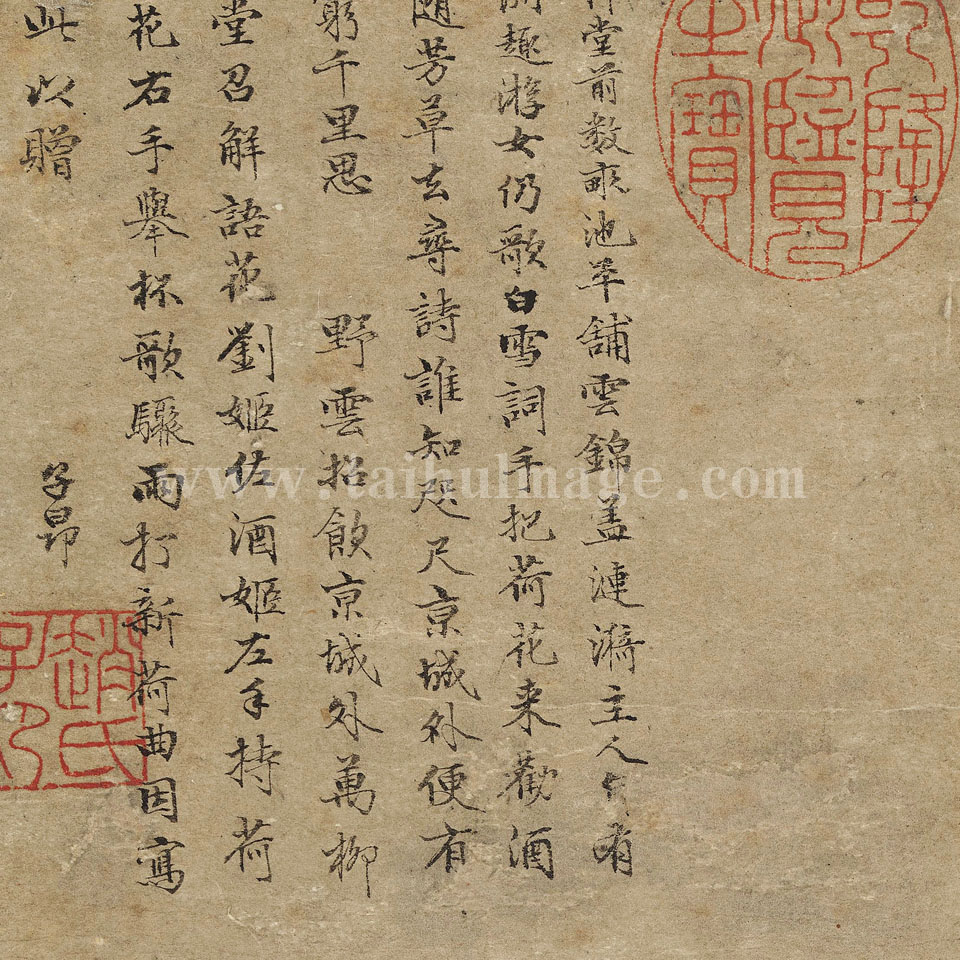 堂前数畝池平鋪雲錦盖漣漪主人自有
趣游女仍歌白雪詞手把荷花来勸酒
随芳草去尋詩誰知咫尺京城外便有
窮千里思 野雲招飲京城外萬柳
堂召解語花劉姬佐酒姬左手持荷
花右手舉杯歌驟雨打新荷曲因寫
此以贈
子昂
乾隆
御覽
之寶
趙氏
子
www.taihuImage.com